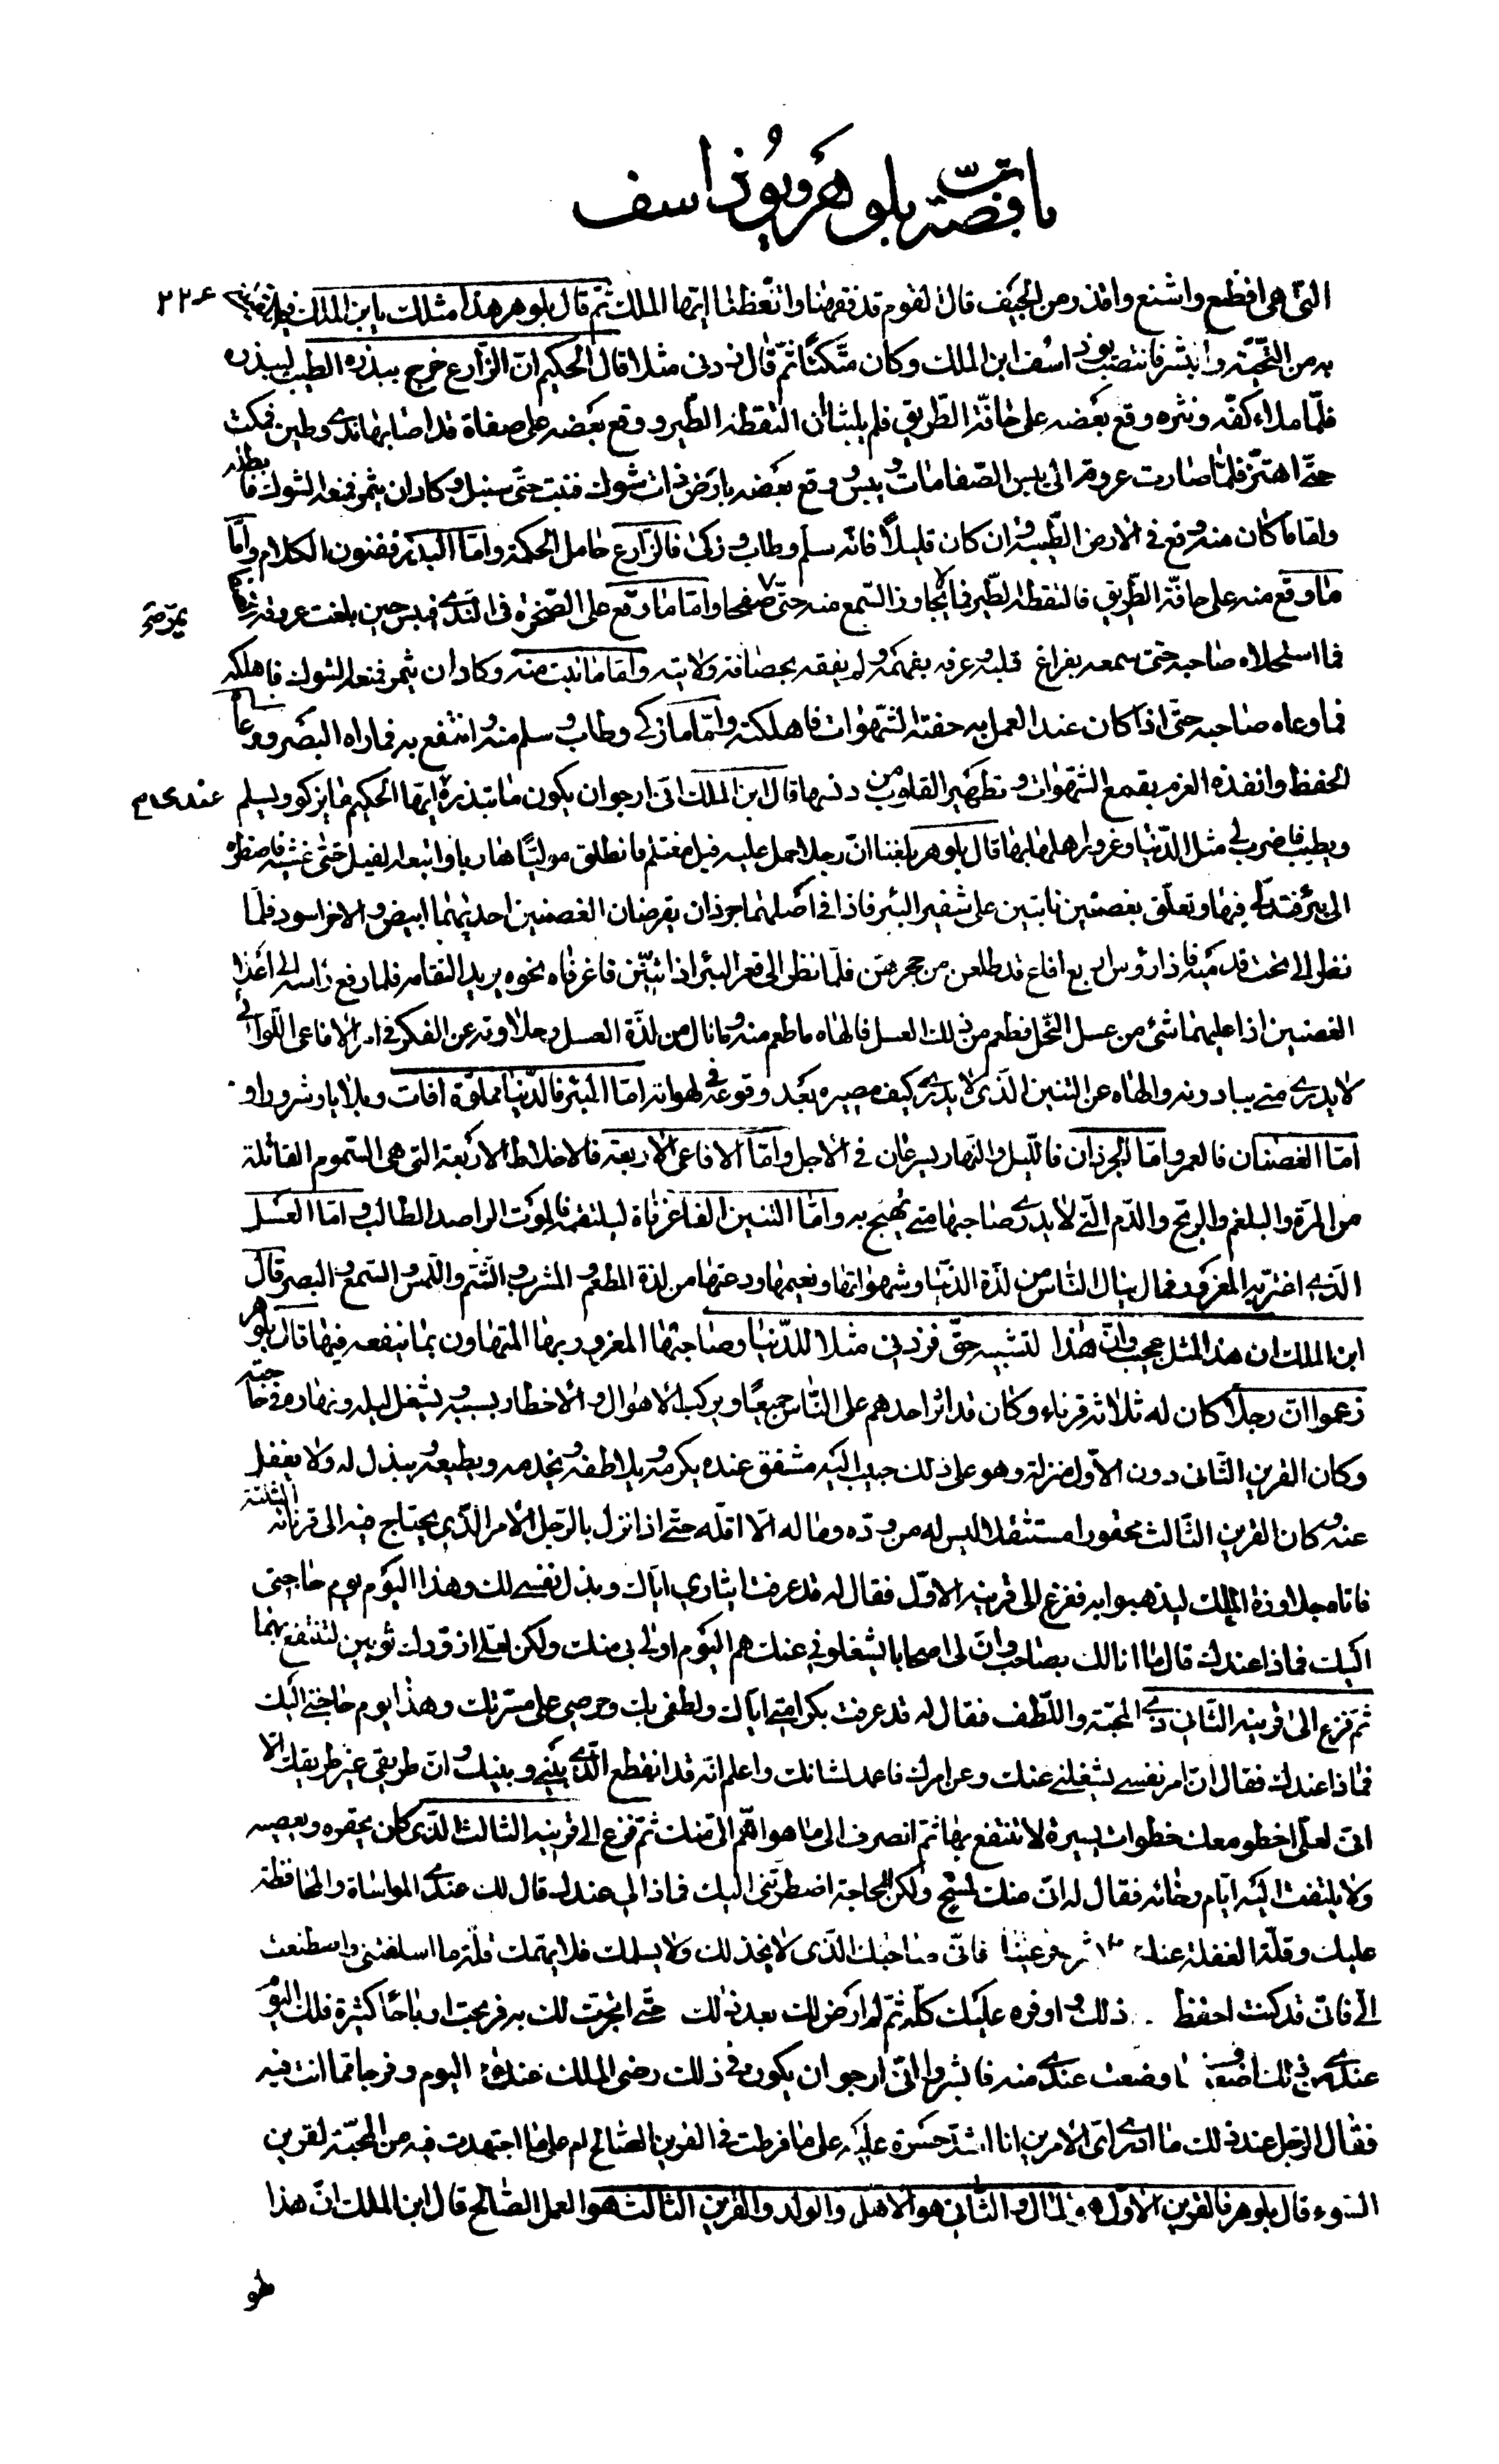 باقي قصّة بلوهر ويوذاسف
٢٢٤
التي هي افظع واشنع واقذر من الجيف قال القوم قد فقهنا واتّعظنا ايّها الملك ثمّ قال بلوهر هذا مثلك يا بن الملك
به من التّحيّة وابشر فانتصب يوذاسف ابن الملك وكان متّكئًا ثمّ قال زدني مثلا قال الحكيم انّ الزّارع خرج ببذره الطيب ليبذره
فلمّا ملاء كفّه ونثره وقع بعضه على حافّة الطّريق فلم يلبث ان التقطه الطّير ووقع بعضه على صفاة قد اصابها ندى وطين فمكث
حتّى اهتزّ فلمّا صارت عروقه الى يبس الصّفا مات ويبس ووقع بعضه بارض ذات شوك فنبت حتّى سنبل وكاد ان يثمر فمنعه الشوك فابطله
وامّا ما كان منه وقع في الارض الطّيّبة وان كان قليلاً فانّه سلم وطاب وزكى فالزّارع حامل الحكمة وامّا البذر ففنون الكلام وامّا
ما وقع منه على حافّة الطّريق فالتقطه الطّير فما لا يجاوز السّمع منه حتّى يمرّ صفحا وامّا ما وقع على الصّخرة في النّدى فيبس حين بلغت عروقه الصّفاة
فما استحلاه صاحبه حتى سمعه بفراغ قلبه وعرفه بفهمه ولم يفقه بحصافة ولا نيّة وامّا ما نبت منه وكاد ان يثمر فمنعه الشوك فاهلكه
فما وعاه صاحبه حتّى اذا كان عند العمل به حفته الشّهوات فاهلكته وامّا ما زكى وطاب وسلم منه وانتفع به فما راه البصر ووعاه
الحفظ وانفذه العزم بقمع الشّهوات وتطهير القلوب من دنسها قال ابن الملك انّي ارجو ان يكون ما تبذره ايّها الحكيم عندي ما يزكو ويسلم
ويطيب فاضرب لي مثل الدّنيا وغرور اهلها بها قال بلوهر بلغنا انّ رجلا حمل عليه فيل مغتلم فانطلق مولّيًا هاربا واتبعه الفيل حتّى غشيه فاضطرّه
الى بئر فتدلّى فيها وتعلّق بغصنين نابتين على شفير البئر فاذا في اصلهما جرذان يقرضان الغصنين احدهما ابيض والاخر اسود فلمّا
نظر الى تحت قدميه فاذا رؤس اربع افاع قد طلعن من جحرهنّ فلمّا نظر الى قعر البئر اذا تنّين فاغر فاه نحوه يريد التقامه فلمّا رفع راسه الى اعلى
الغصنين اذا عليهما شئ من عسل النّحل فطعم من ذلك العسل فالهاه ما طعم منه وما نال من لذّة العسل وحلاوته عن الفكر في امر الافاعي اللّواتي
لا يدري متى يبادرنه والهاه عن التنين الّذي لا يدري كيف مصيره بعد وقوعه في لهواته امّا البئر فالدّنيا مملوّة افات وبلايا وشرور او
امّا الغصنان فالعمر وامّا الجرذان فاللّيل والنّهار يسرعان في الاجل وامّا الافاعي الاربعة فالاخلاط الاربعة التي هي السّموم القاتلة
من المرّة والبلغم والريح والدّم الّتي لا يدري صاحبها متى تهيج به وامّا التنين الفاغر فاه ليلتقمه فالموت الراصد الطالب وامّا العسل
الّذي اغترّ به المغرور فما ينال النّاس من لذّة الدّنيا وشهواتها ونعيمها ودعتها من لذة المطعم والمشرب والشّم واللّمس والسّمع والبصر قال
ابن الملك ان هذا المثل عجيب وانّ هذا لتشبيه حقّ فزدني مثلا للدّنيا وصاحبها المغرور بها المتهاون بما ينفعه فيها قال بلوهر
زعموا انّ رجلاً كان له ثلاثة قرناء وكان قد اثر احدهم على النّاس جميعًا ويركب الاهوال والاخطار بسببه ويشغل ليله ونهاره في حاجته
وكان القرين الثّاني دون الاوّل منزلة وهو على ذلك حبيب اليه مشفق عنده يكرمه ويلاطفه ويخدمه ويطيعه ويبذل له ولا يغفل
عنه وكان القرين الثّالث محقورا مستثقلا ليس له من ودّه وماله الّا اقلّه حتّى اذا نزل بالرّجل الامر الّذي يحتاج فيه الى قرنائه الثلثة
فاتاه جلاوزة الملك ليذهبوا به ففزع الى قرينه الاوّل فقال له قد عرفت ايثاري ايّاك وبذل نفسي لك وهذا اليوم يوم حاجتي
اليك فماذا عندك قال ما انا لك بصاحب وانّ لي اصحابا يشغلوني عنك هم اليوم اولى بي منك ولكن لعلّي ازوّدك ثوبين لتنتفع بهما
ثمّ فزع الى قرينه الثّاني ذي المحبّة واللّطف فقال له قد عرفت بكرامتي ايّاك ولطفي بك وحرصي على مسرّتك وهذا يوم حاجتي اليك
فماذا عندك فقال انّ امر نفسي يشغلني عنك وعن امرك فاعمد لشانك واعلم انّه قد انقطع الّذي بيني وبينك وانّ طريقي غير طريقك الّا
انّي لعلّي اخطو معك خطوات يسيرة لا تنتفع بها ثمّ انصرف الى ما هو اهمّ اليّ منك ثمّ فزع الى قرينه الثالث الّذي كان يحقره ويعصيه
ولا يلتفت اليه ايّام رخائه فقال له انّي منك لمستحي ولكن الحاجة اضطرّتني اليك فماذا لي عندك قال لك عندي المواساة والمحافظة
عليك وقلّة الغفلة عنك فانّي صاحبك الّذي لا يخذلك ولا يسلمك فلا يهمّك قلّة ما اسلفتني واصطنعت
الي فانّي قد كنت احفظ ذلك واوفره عليك كلّه ثمّ لم ارض لك بعد ذلك حتّى اتّجرت لك به فربحت ارباحًا كثيرة فلك اليوم
عندي من ذلك اضعاف ما وضعت عندي منه فابشر وانّي ارجو ان يكون في ذلك رضى الملك عنك اليوم وفرجا ممّا انت فيه
فقال الرّجل عند ذلك ما ادري ايّ الامرين انا اشدّ حسرة عليه على ما فرطت في القرين الصّالح ام على ما اجتهدت فيه من المحبّة لقرين
السّوء قال بلوهر فالقرين الاوّل هو المال والثّاني هو الاهل والولد والقرين الثالث هو العمل الصّالح قال ابن الملك انّ هذا
هو